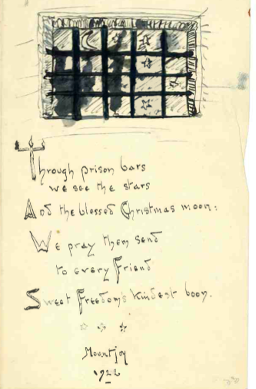 Through prison bars
we see the stars
And the blessed Christmas moon:
We pray them send
to every Friend
Sweet Freedom's kindest boon.
Mountjoy
1922